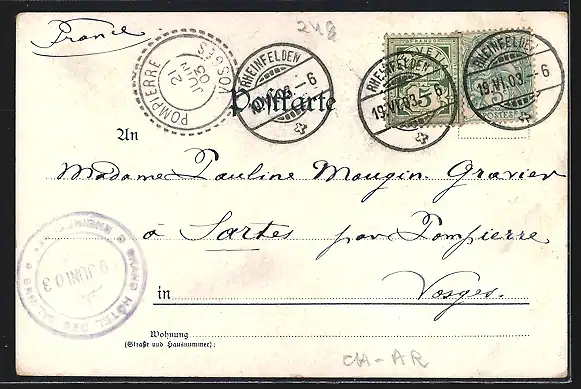 France
248
POMPIERRE VOSGES
2 JUIN 03
RHEINFELDEN
19.VI.03.-6
RHEINFELDEN
19.VI.03.-6
RHEINFELDEN
19.VI.03.-6
FRANCO
5
5
POSTES
Postkarte
An
Madame Pauline Mougin-Gravier
à Sartes par Pompierre
in Vosges.
GRAND HÔTEL DES SALINES
9 JUNI 03
Wohnung
(Straße und Hausnummer):
CH-AR